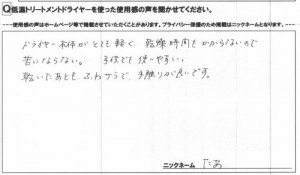 Q低温トリートメントドライヤーを使った使用感の声を聞かせてください。
使用感の声はホームページ等で掲載させていただくことがあります。プライバシー保護のため掲載はニックネームとなります。
ドライヤー本体がとても軽く 乾燥時間もかからないので
苦にならない。 子供でも使いやすい。
乾いたあとも、ふわサラで、手触りが良いです。
ニックネーム たあ